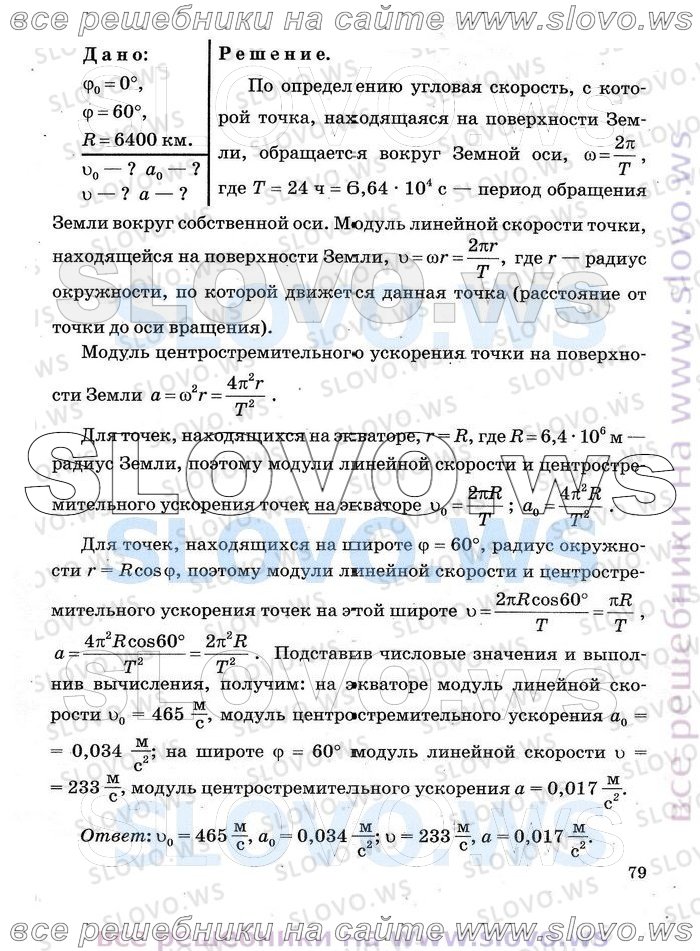 все решебники на сайте www.slovo.ws
Дано:
φ₀ = 0°,
φ = 60°,
R = 6400 км.
υ₀ — ? a₀ — ?
υ — ? a — ?
Решение.
По определению угловая скорость, с кото-
рой точка, находящаяся на поверхности Зем-
ли, обращается вокруг Земной оси, ω = 2π/T ,
где T = 24 ч = 8,64 · 10⁴ с — период обращения
Земли вокруг собственной оси. Модуль линейной скорости точки,
находящейся на поверхности Земли, υ = ωr = 2πr/T, где r — радиус
окружности, по которой движется данная точка (расстояние от
точки до оси вращения).
Модуль центростремительного ускорения точки на поверхно-
сти Земли a = ω²r = 4π²r/T² .
Для точек, находящихся на экваторе, r = R, где R = 6,4 · 10⁶ м —
радиус Земли, поэтому модули линейной скорости и центростре-
мительного ускорения точек на экваторе υ₀ = 2πR/T ; a₀ = 4π²R/T² .
Для точек, находящихся на широте φ = 60°, радиус окружно-
сти r = Rcosφ, поэтому модули линейной скорости и центростре-
мительного ускорения точек на этой широте υ = 2πRcos60°/T = πR/T ,
a = 4π²Rcos60°/T² = 2π²R/T² . Подставив числовые значения и выпол-
нив вычисления, получим: на экваторе модуль линейной ско-
рости υ₀ = 465 м/с, модуль центростремительного ускорения a₀ =
= 0,034 м/с²; на широте φ = 60° модуль линейной скорости υ =
= 233 м/с, модуль центростремительного ускорения a = 0,017 м/с².
Ответ: υ₀ = 465 м/с, a₀ = 0,034 м/с²; υ = 233 м/с, a = 0,017 м/с².
79
все решебники на сайте www.slovo.ws
все решебники на www.slovo.ws
все решебники на www.slovo.ws
SLOVO.WS